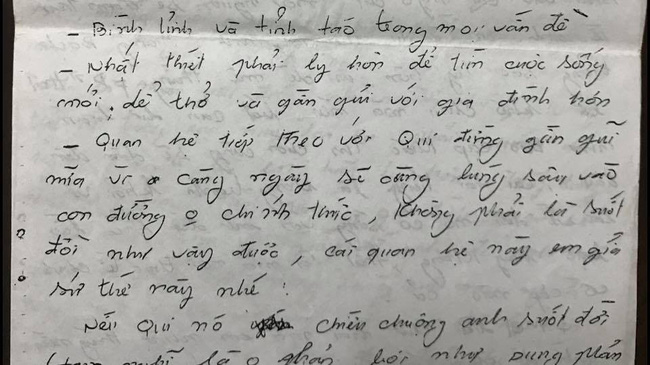 - Bình tỉnh và tỉnh táo trong mọi vấn đề
- Nhất thiết phải ly hôn để tìm cuộc sống
mới, dể thở và gần gủi với gia đình hơn
- Quan hệ tiếp theo với Qui đừng gần gũi
nữa vì càng ngày sẽ càng lúng sâu vào
con đường o chính thức, không phải là suốt
đời như vậy được, cái quan hệ này em giả
sử thế này nhé:
Nếu Qui nó chiều chuộng anh suốt đời
là o phản bội như Dung phản